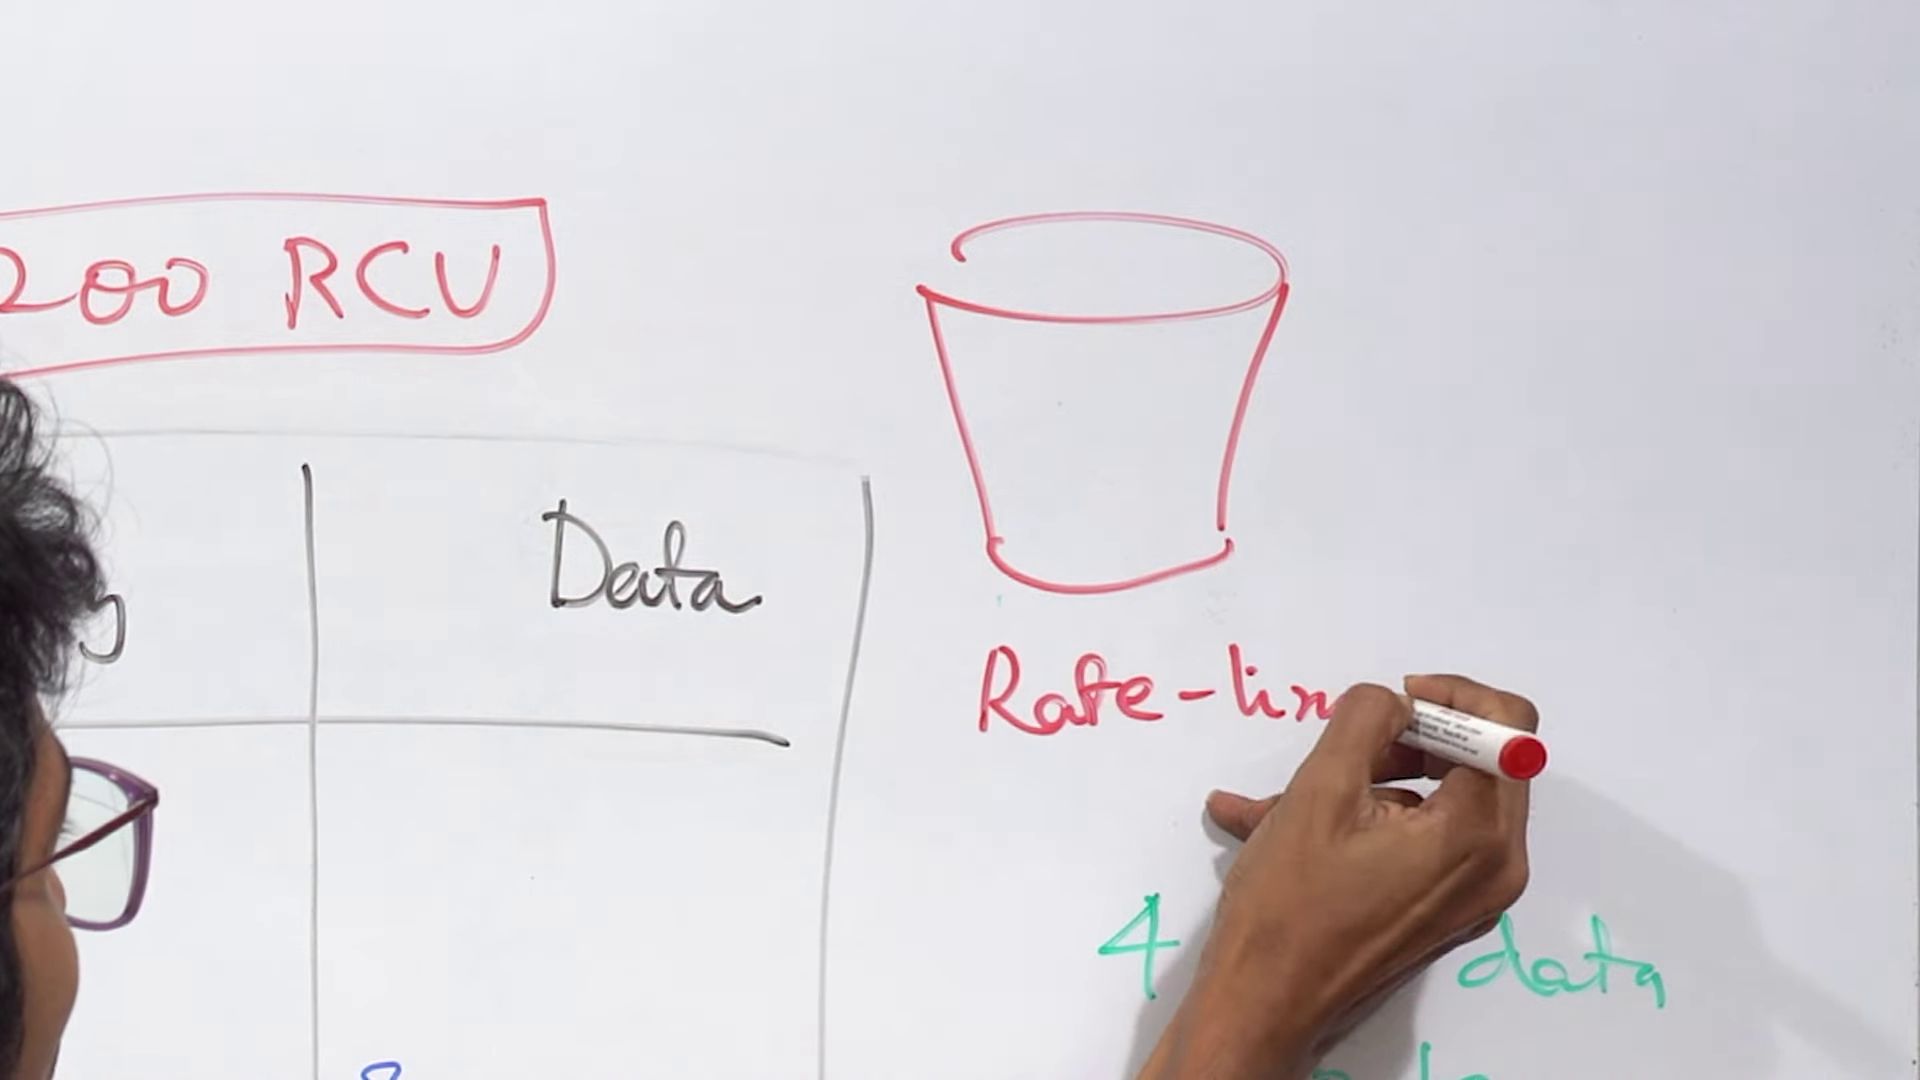 200 RCU
Data
Rate-lim
4 data